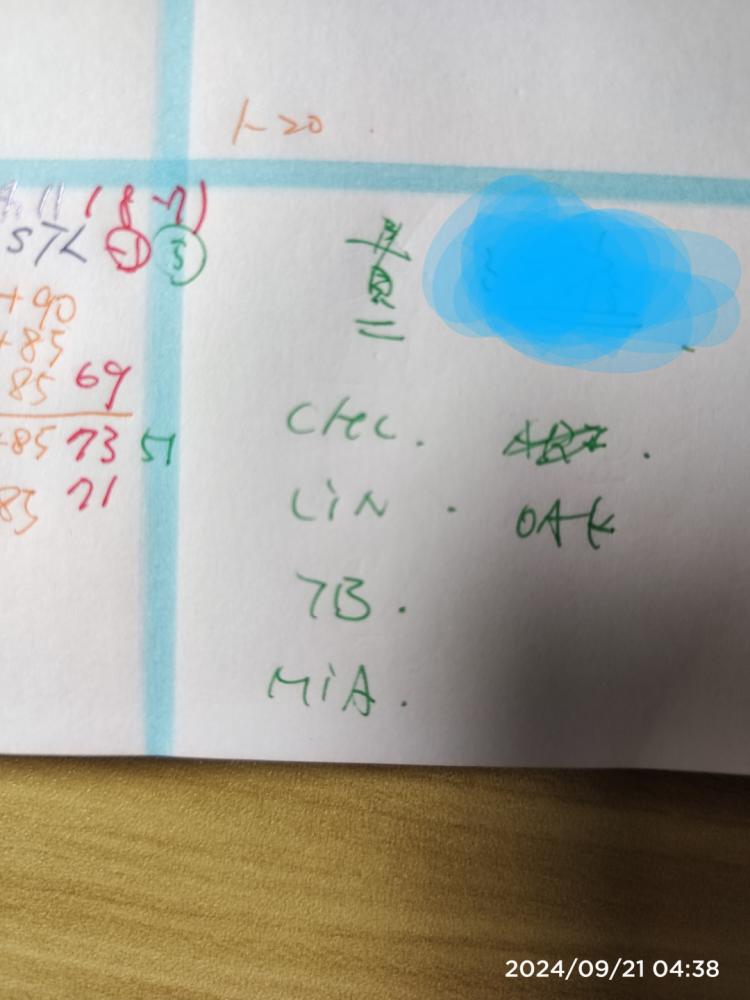 1-20
11 (8-7)
STL -1 5
+90
+85
85 69
-85 73 51
85 71
CHC.
LiN . OAK
TB.
MiA.
2024/09/21 04:38